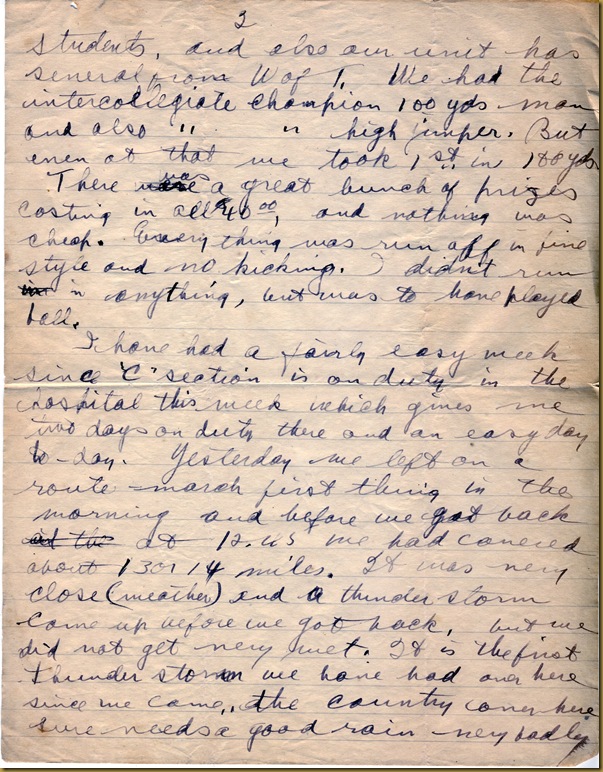 2
students, and also our unit has
several from U of T. We had the
intercollegiate champion 100 yds man
and also " " high jumper. But
even at that we took 1st. in 100 yds
There was a great bunch of prizes
costing in all $40.00, and nothing was
cheap. Everything was run off in fine
style and no kicking. I didn't run
in anything, but was to have played
ball.
I have had a fairly easy week
since "C" section is on duty in the
hospital this week which gives me
two days on duty there and an easy day
to-day. Yesterday we left on a
route-march first thing in the
morning and before we got back
at the at 12.45 we had covered
about 13 or 14 miles. It was very
close (weather) and a thunder storm
came up before we got back, but we
did not get very wet. It is the first
thunder storm we have had over here
since we came, the country over here
sure needs a good rain very badly